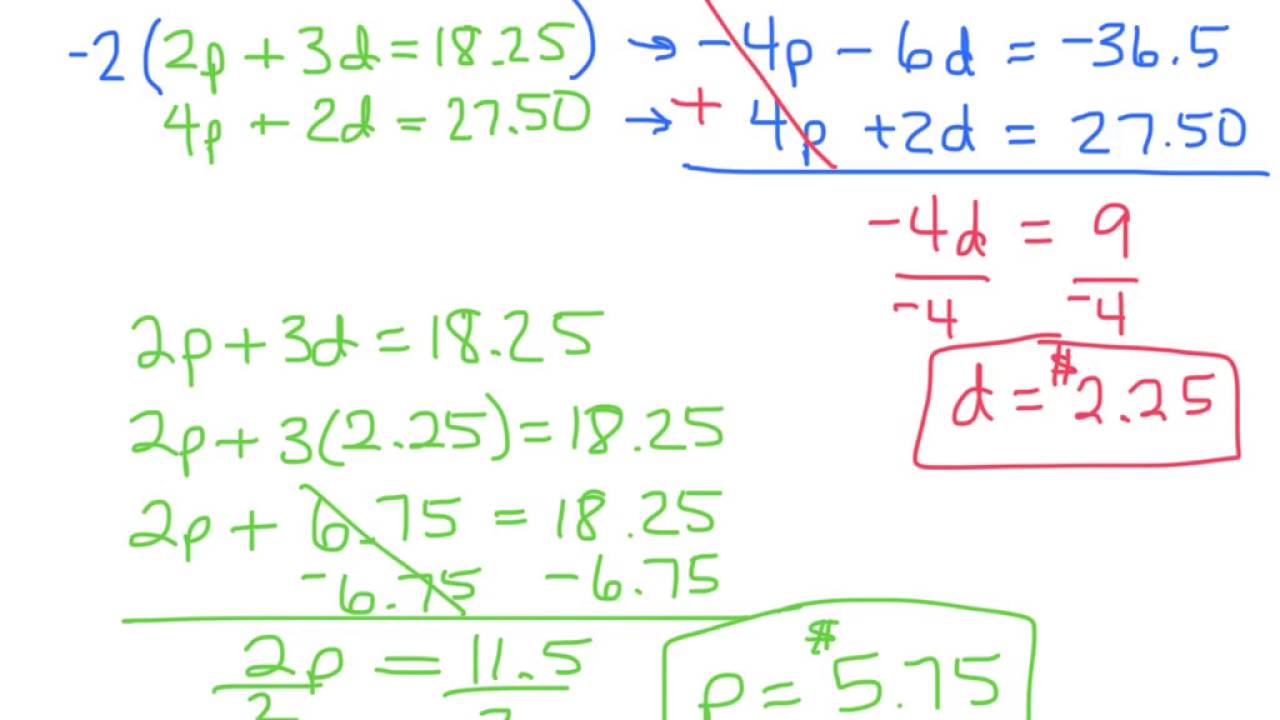 -2(2p + 3d = 18.25) → -4p - 6d = -36.5
4p + 2d = 27.50 → + 4p + 2d = 27.50
-4d = 9
-4 -4
d = $2.25
2p + 3d = 18.25
2p + 3(2.25) = 18.25
2p + 6.75 = 18.25
-6.75 -6.75
2p = 11.5
p = $5.75